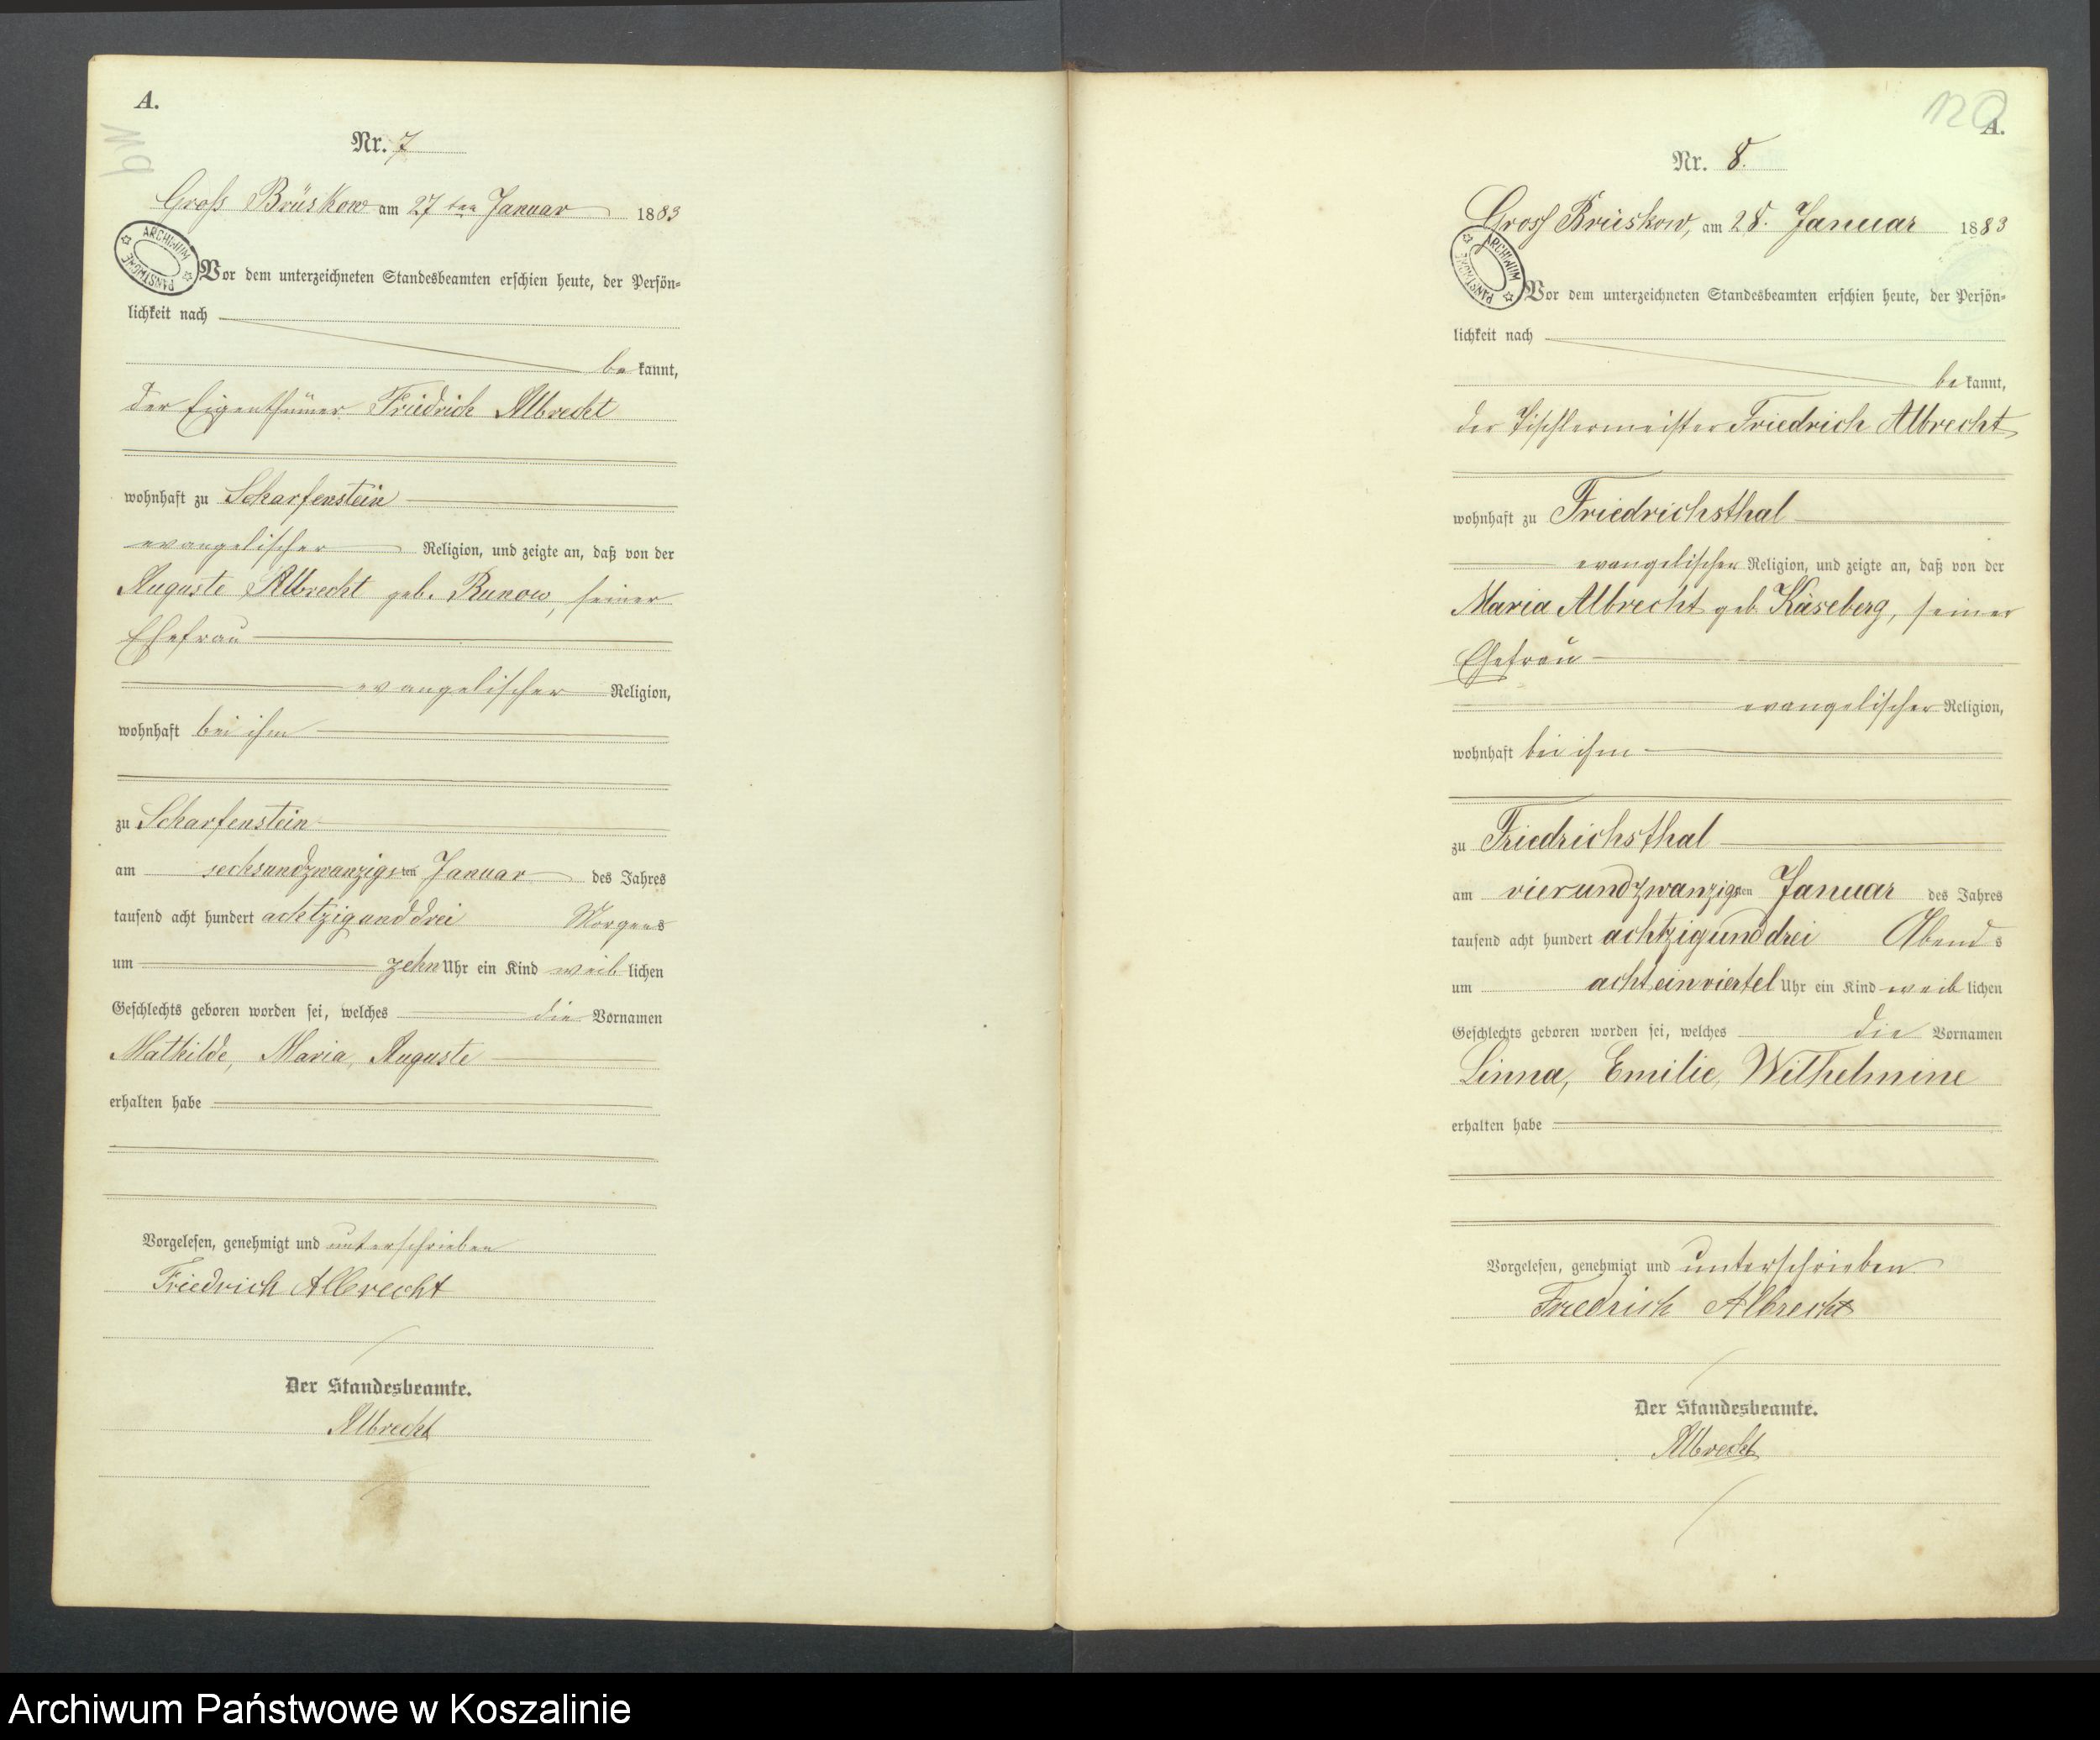 A.
119
Nr. 7
Gross Brüskow am 27ten Januar 1883
ARCHIWUM PAŃSTWOWE
Vor dem unterzeichneten Standesbeamten erschien heute, der Persön-
lichkeit nach
be kannt,
der Eigenthümer Friedrich Albrecht
wohnhaft zu Scharfenstein
evangelischer Religion, und zeigte an, daß von der
Auguste Albrecht geb. Runow, seiner
Ehefrau
evangelischer Religion,
wohnhaft bei ihm
zu Scharfenstein
am sechsundzwanzigsten Januar des Jahres
tausend acht hundert achtzigunddrei Morgens
um zehn Uhr ein Kind weib lichen
Geschlechts geboren worden sei, welches die Vornamen
Mathilde, Maria, Auguste
erhalten habe
Vorgelesen, genehmigt und unterschrieben
Friedrich Albrecht
Der Standesbeamte.
Albrecht
120
A.
Nr. 8.
Gross Brüskow, am 28. Januar 1883
ARCHIWUM PAŃSTWOWE
Vor dem unterzeichneten Standesbeamten erschien heute, der Persön-
lichkeit nach
be kannt,
der Tischlermeister Friedrich Albrecht
wohnhaft zu Friedrichsthal
evangelischer Religion, und zeigte an, daß von der
Maria Albrecht geb. Käseberg, seiner
Ehefrau
evangelischer Religion,
wohnhaft bei ihm
zu Friedrichsthal
am vierundzwanzigsten Januar des Jahres
tausend acht hundert achtzigunddrei Abends
um acht einviertel Uhr ein Kind weib lichen
Geschlechts geboren worden sei, welches die Vornamen
Linna, Emilie, Wilhelmine
erhalten habe
Vorgelesen, genehmigt und unterschrieben
Friedrich Albrecht
Der Standesbeamte.
Albrecht
Archiwum Państwowe w Koszalinie